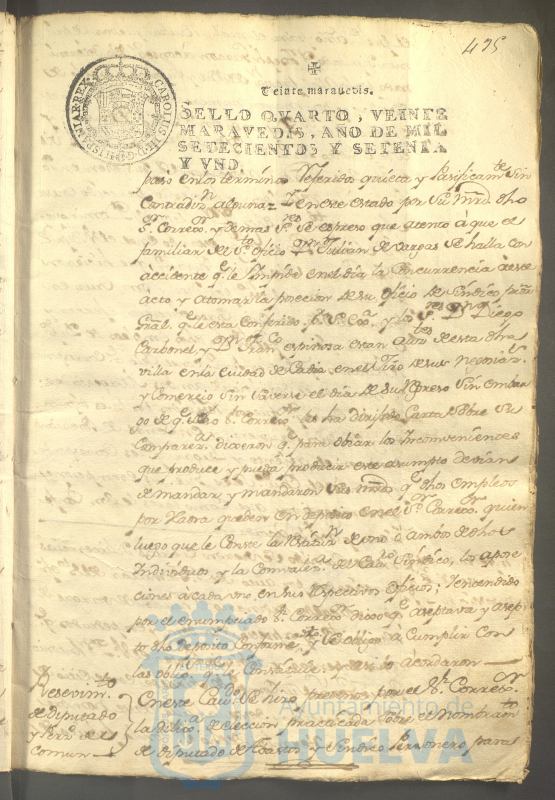 495
Veinte maravedis.
SELLO QVARTO, VEINTE
MARAVEDIS, AÑO DE MIL
SETECIENTOS Y SETENTA
Y VNO.
paso en los terminos referidos quieta y pacificamte sin
Contradizn alguna: Y en este estado por su mrd dho
sr Correxor y demas sres se expreso que atento à que el
familiar del sto oficio Dn Julian de Vargas se halla con
accidente qe le impide en el dia la Concurrencia à este
acto y à tomar la posecion de su oficio de Sindico
Gral qe le esta conferido Dn Diego
Carbonel y Dn Franco espinosa estan de esta dha
villa en la ciudad de Cadiz en el de sus
y Comercio sin saverse el dia de su regreso sin embar
go de qe sr Correxor les ha dirixido Carta sobre su
Comparexa. dixeron qe para obiar los Inconvenientes
que produce y pueda producir este asumpto devian
de mandar y mandaron sus mrds qe dhos empleos
por haora queden en deposito en el sr Correxor quien
luego que le conste la de uno ò ambos de dhos
Individuos y la del Sindico, los apose
cione à cada uno en sus respectivos oficios; Y entendido
por el enumpciado sr Correxor dixo qe aseptava y asep
to dho deposito conforme y se obligo a Cumplir con
las obligs qe le y asi lo acordaron
Resevimto
de Diputado
y Perro del
comun
En este Cavdo se hizo presente por el sr Correxor
la de eleccion practicada sobre el Nombramto
de diputado de Abastos y Sindico Perzonero, para
Ayuntamiento de
HUELVA